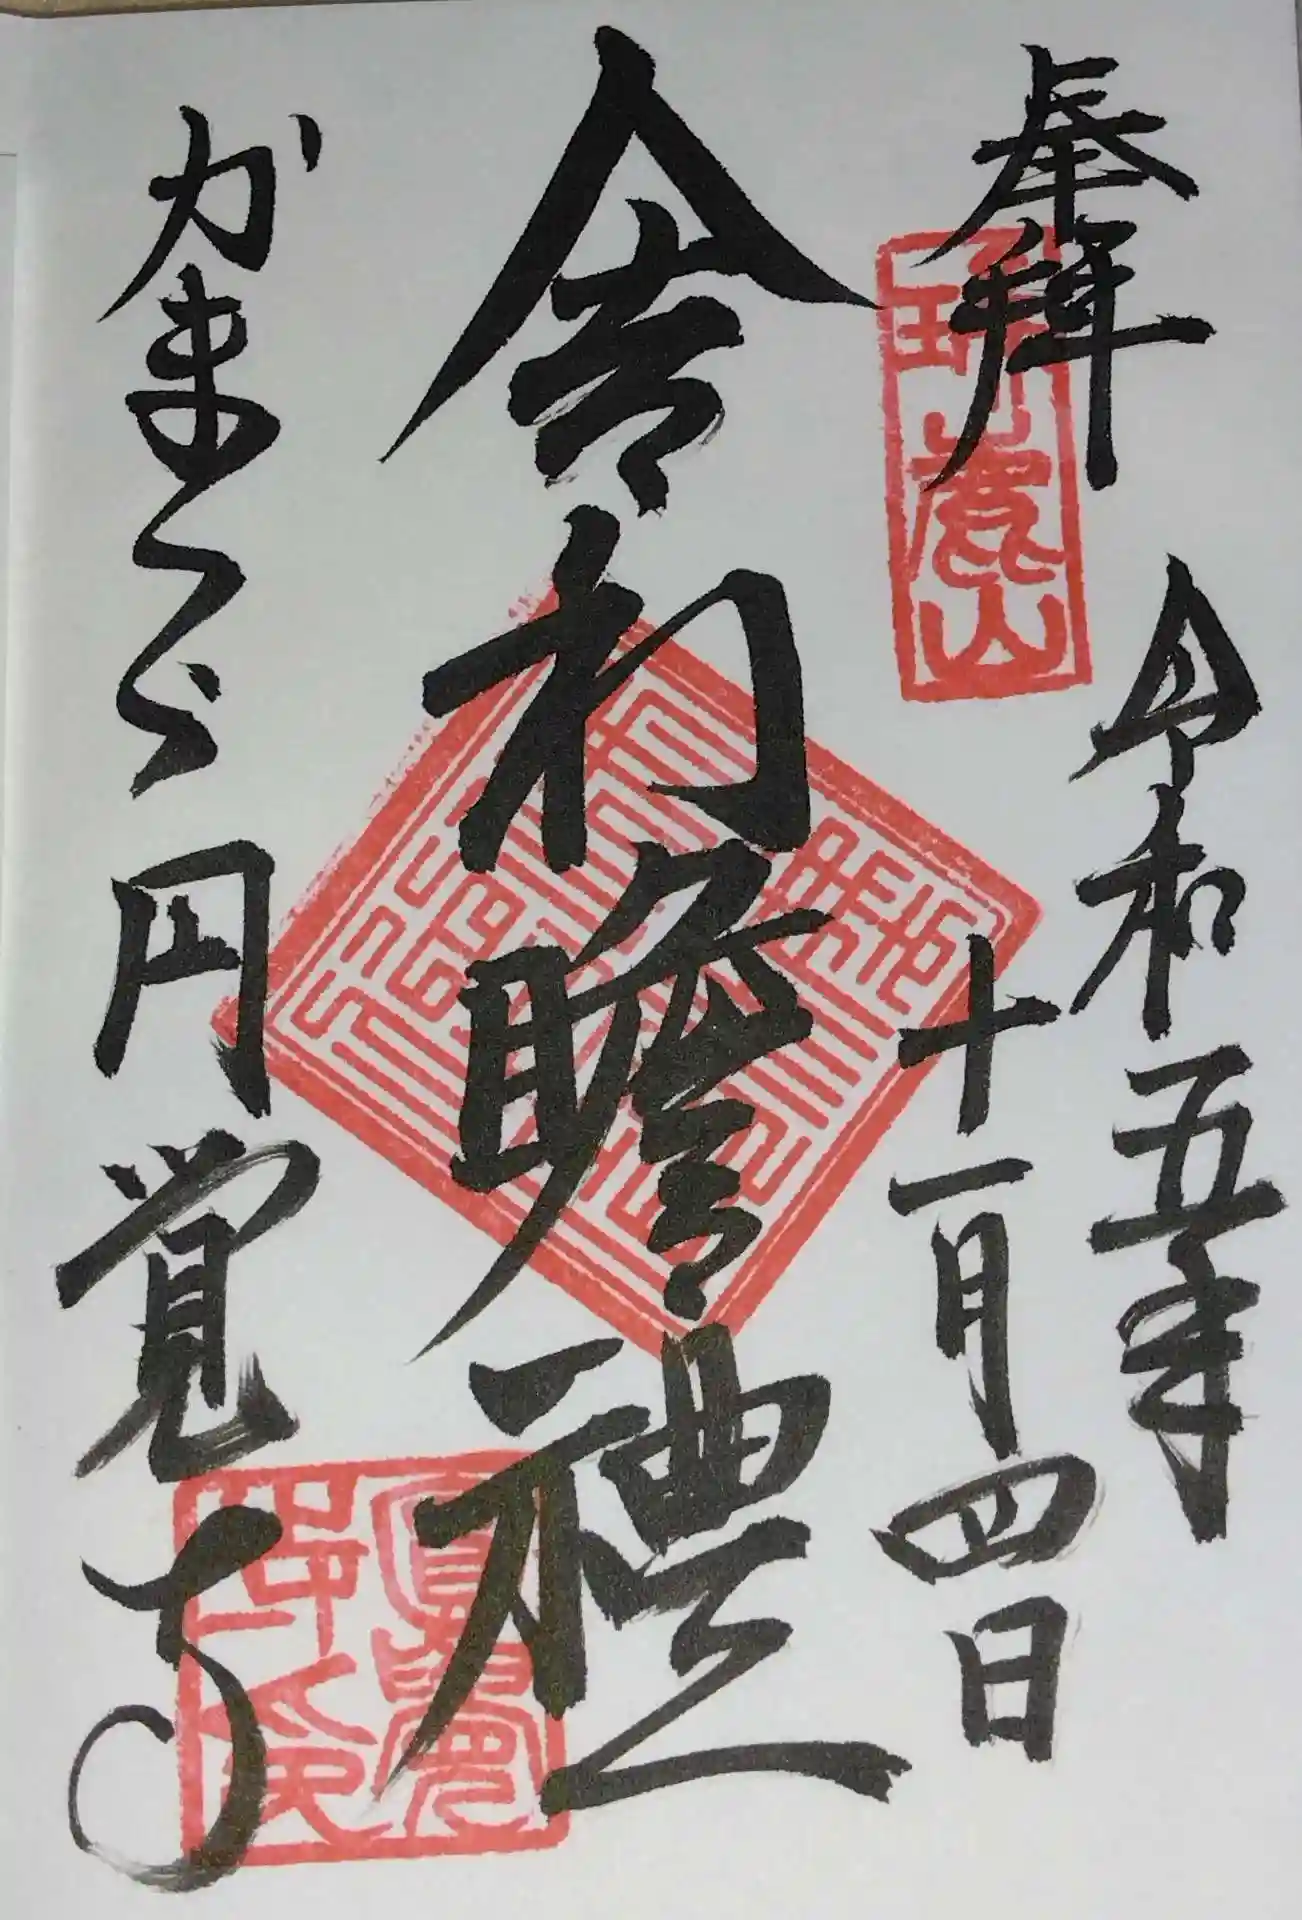 奉拝
令和五年
十一月四日
舎利瞻禮
かまくら円覚寺
瑞鹿山